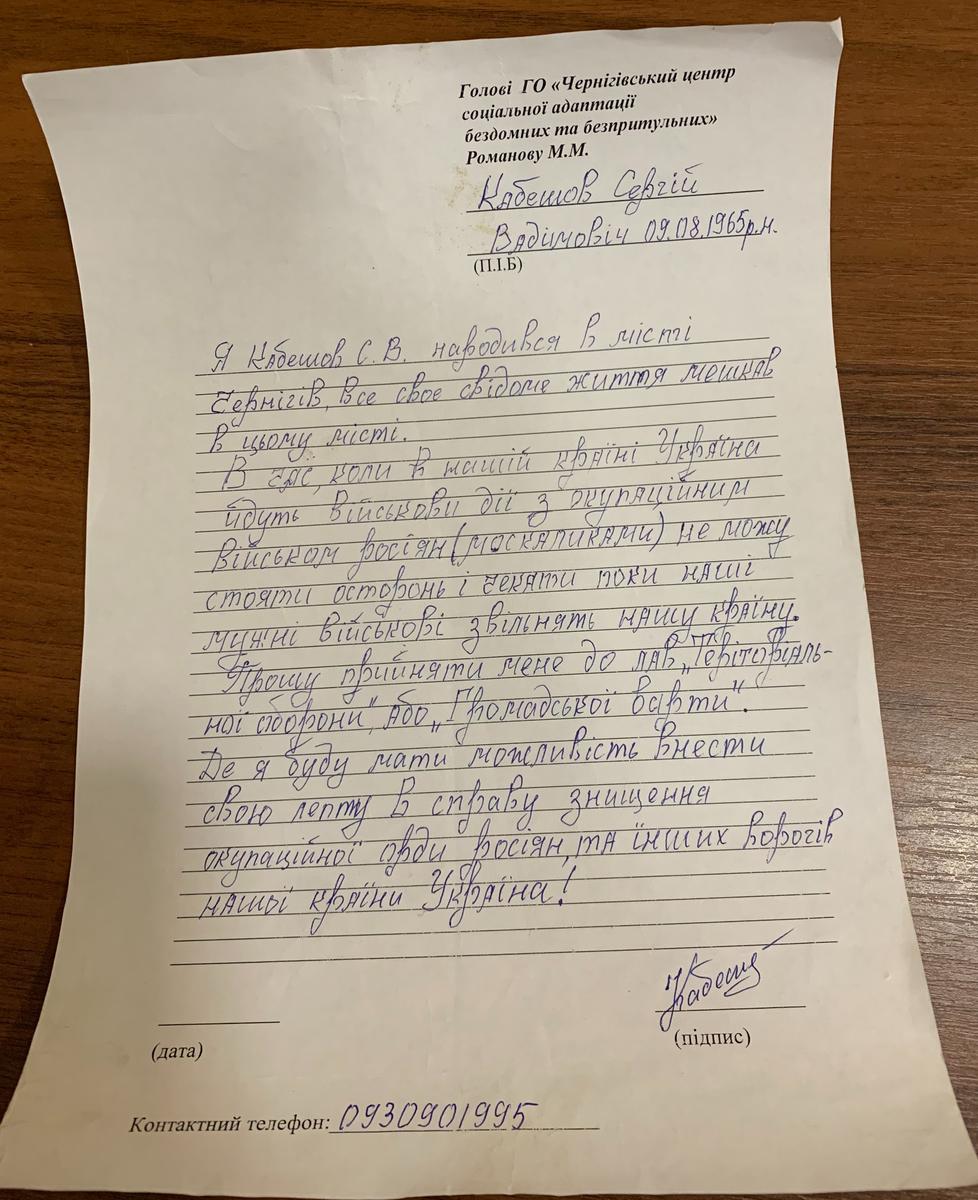 Голові ГО «Чернігівський центр
соціальної адаптації
бездомних та безпритульних»
Романову М.М.
Кабешов Сергій
Вадімовіч 09.08.1965р.н.
(П.І.Б)
Я Кабешов С.В. народився в місті
Чернігів, все своє свідоме життя мешкав
в цьому місті.
В час, коли в нашій країні Україна
йдуть військови дії з окупаційним
військом росіян (москаликами) не можу
стояти осторонь і чекати поки наші
мужні військові звільнять нашу країну.
Прошу прийняти мене до лав „Теріторіаль-
ної оборони", або „Громадської варти".
Де я буду мати можливість внести
свою лепту в справу знищення
окупаційної орди росіян, та їнших ворогів
нашої країни Україна!
Кабеш
(дата)
(підпис)
Контактний телефон: 0930901995